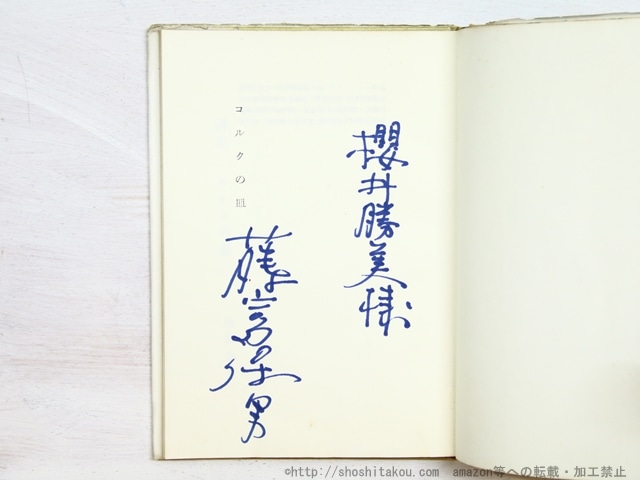 櫻井勝美様
コルクの皿
藤富保男
©http://shoshitakou.com amazon等への転載・加工禁止